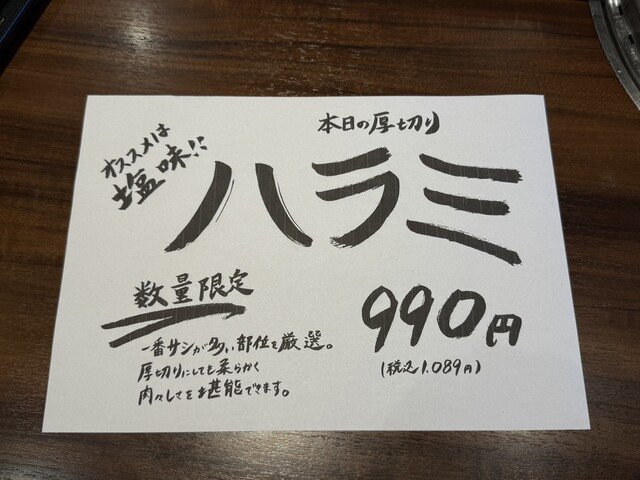 オススメは
塩味!!
本日の厚切り
ハラミ
数量限定
990円
(税込1.089円)
一番サシが多い部位を厳選。
厚切りにしても柔らかく
肉々しさを堪能できます。